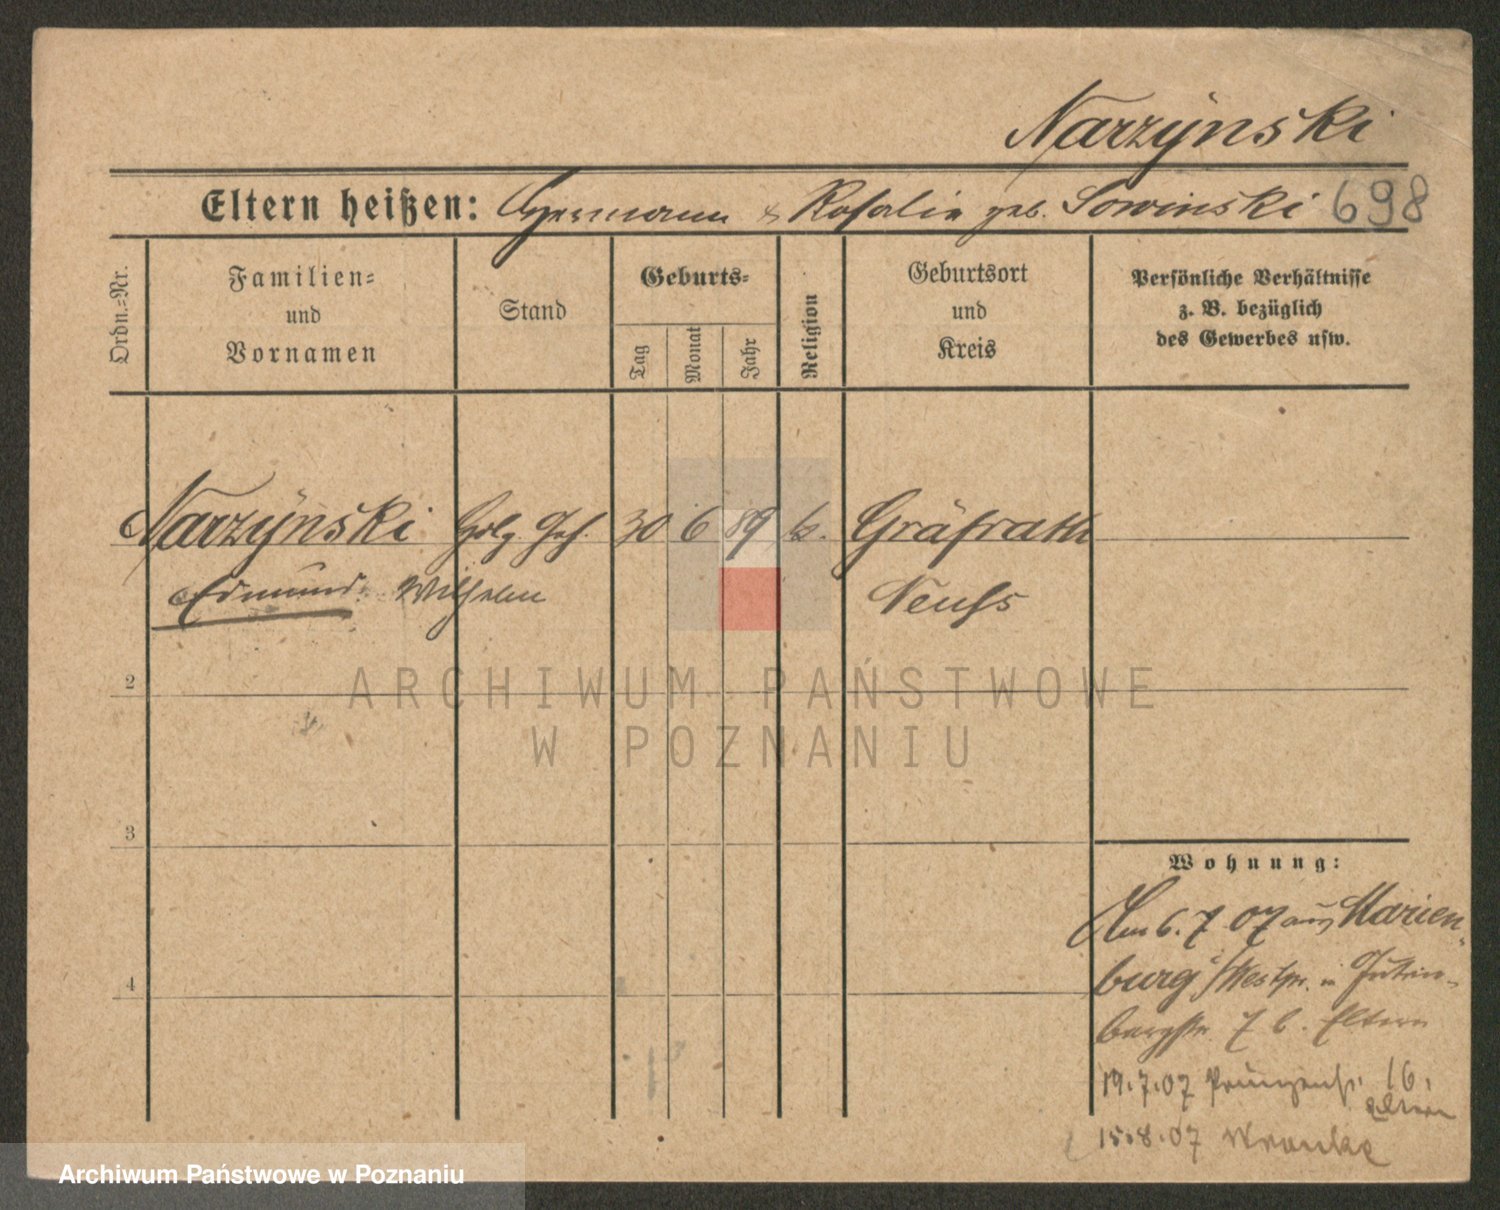 Narzÿnski
Eltern heißen: Hermann & Rosalie geb. Sowinski 698
Ordn.=Nr.
Familien=
und
Vornamen
Stand
Geburts=
Tag
Monat
Jahr
Religion
Geburtsort
und
Kreis
Persönliche Verhältnisse
z. B. bezüglich
des Gewerbes usw.
Narzÿnski Hdlg. Geh. 30 6 89 k. Gräfrath
Edmund Wilhelm Neuss
2
ARCHIWUM PAŃSTWOWE
W POZNANIU
3
4
Wohnung:
Am 6. 7. 07 aus Marien-
burg Westpr. n
7 b. Eltern
19.7.07 Prinzenst. 16.
Eltern
15.8.07 Wronke
Archiwum Państwowe w Poznaniu